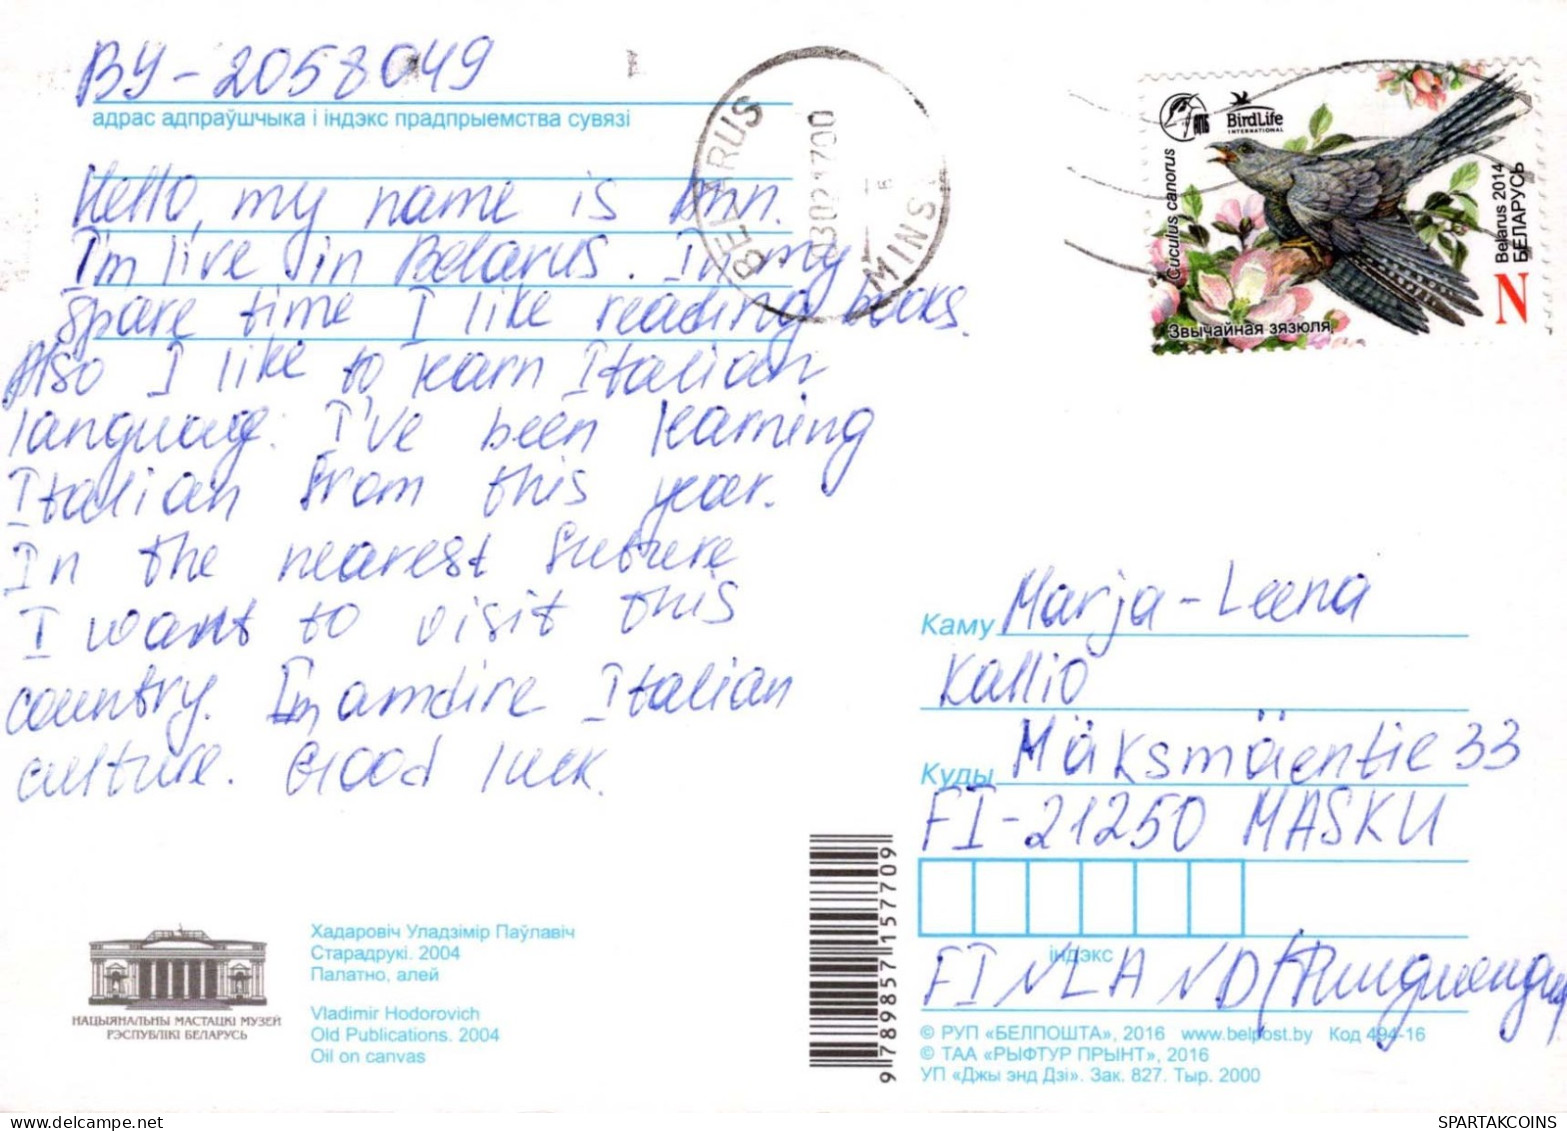 BY-2058049
адрас адпраўшчыка і індэкс прадпрыемства сувязі
Hello, my name is Ann.
I'm live in Belarus. In my
spare time I like reading books.
Also I like to learn Italian
language. I've been learning
Italian from this year.
In the nearest future
I want to visit this
country. I'm amdire Italian
culture. Good luck.
BELARUS
MINS
BirdLife
INTERNATIONAL
Cuculus canorus
Звычайная зязюля
Belarus 2014
БЕЛАРУСЬ
N
Каму Marja-Leena
Kallio
Куды Mäksmäentie 33
FI-21250 MASKU
індэкс
FINLAND
НАЦЫЯНАЛЬНЫ МАСТАЦКІ МУЗЕЙ
РЭСПУБЛІКІ БЕЛАРУСЬ
Хадаровіч Уладзімір Паўлавіч
Старадрукі. 2004
Палатно, алей
Vladimir Hodorovich
Old Publications. 2004
Oil on canvas
9 789857 157709
© РУП «БЕЛПОШТА», 2016 www.belpost.by Код 494-16
© ТАА «РЫФТУР ПРЫНТ», 2016
УП «Джы энд Дзі». Зак. 827. Тыр. 2000
SPARTAKCOINS